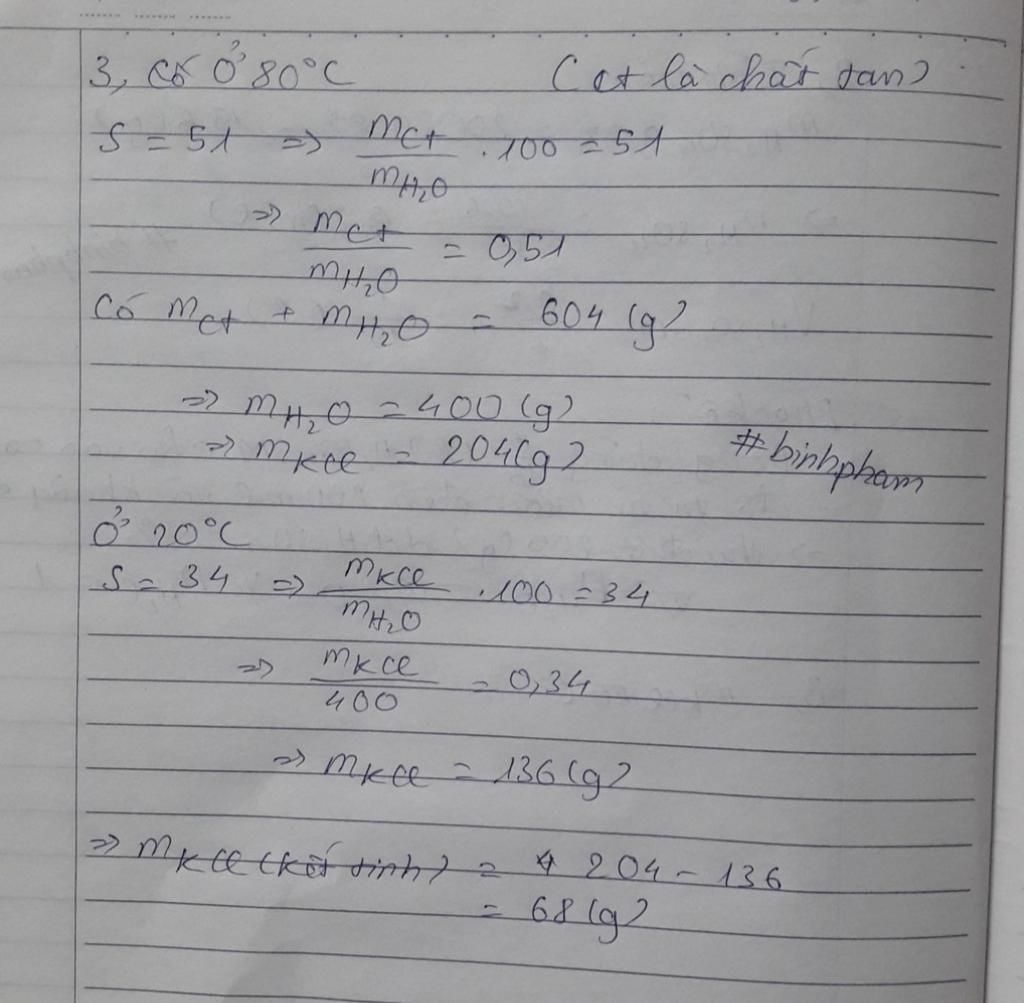 3, Có Ở 80°C (ct là chất tan)
S = 51 => mct/mH₂O . 100 = 51
=> mct/mH₂O = 0,51
Có mct + mH₂O = 604 (g)
=> mH₂O = 400 (g)
=> mKCl = 204 (g) #binhpham
Ở 20°C
S = 34 => mKCl/mH₂O . 100 = 34
=> mKCl/400 = 0,34
=> mKCl = 136 (g)
=> mKCl (kết tinh) = 204 - 136
= 68 (g)